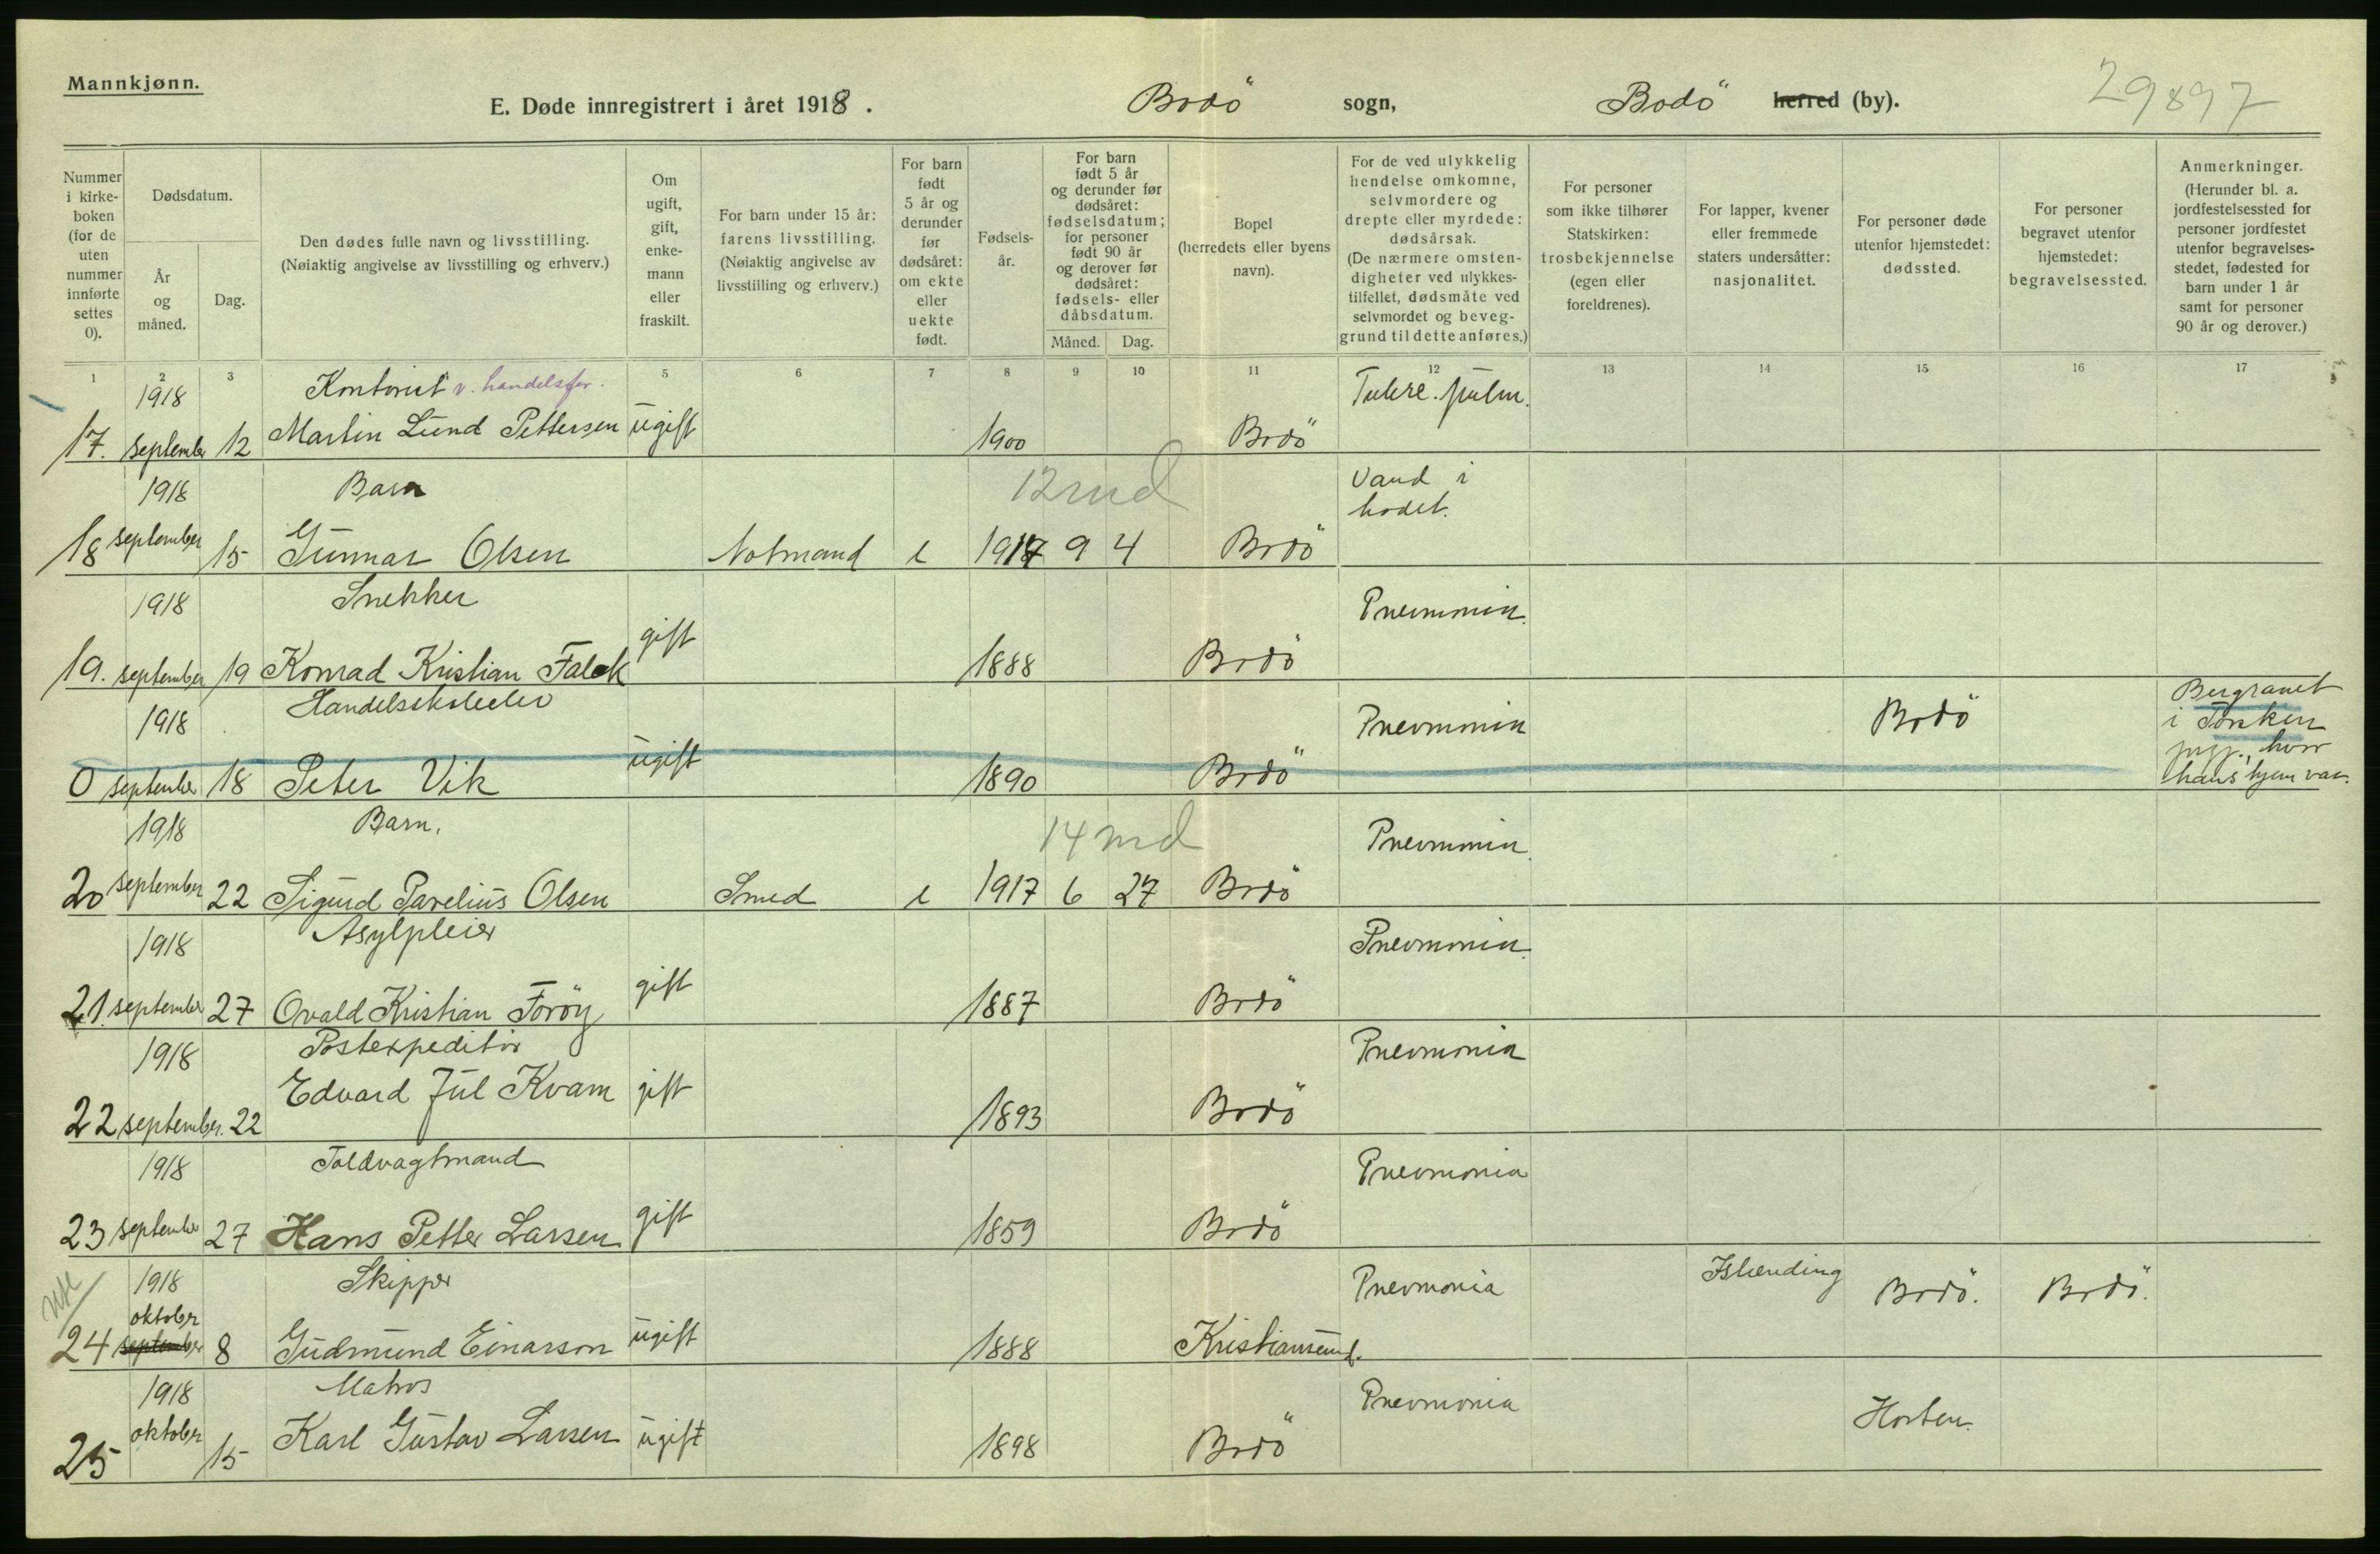 Mannkjønn.
E. Døde innregistrert i året 1918. Bodö sogn, Bodö herred (by). 29897
Nummer i kirkeboken (for de uten nummer innførte settes 0).
Dødsdatum.
År og måned.
Dag.
Den dødes fulle navn og livsstilling.
(Nøiaktig angivelse av livsstilling og erhverv.)
Om ugift, gift, enkemann eller fraskilt.
For barn under 15 år: farens livsstilling. (Nøiaktig angivelse av livsstilling og erhverv.)
For barn født 5 år og derunder før dødsåret: om ekte eller uekte født.
Fødselsår.
For barn født 5 år og derunder før dødsåret: fødselsdatum; for personer født 90 år og derover før dødsåret: fødsels- eller dåbsdatum.
Måned. Dag.
Bopel (herredets eller byens navn).
For de ved ulykkelig hendelse omkomne, selvmordere og drepte eller myrdede: dødsårsak. (De nærmere omstendigheter ved ulykkestilfellet, dødsmåte ved selvmordet og beveggrund til dette anføres.)
For personer som ikke tilhører Statskirken: trosbekjennelse (egen eller foreldrenes).
For lapper, kvener eller fremmede staters undersåtter: nasjonalitet.
For personer døde utenfor hjemstedet: dødssted.
For personer begravet utenfor hjemstedet: begravelsessted.
Anmerkninger. (Herunder bl. a. jordfestelsessted for personer jordfestet utenfor begravelsesstedet, fødested for barn under 1 år samt for personer 90 år og derover.)
1 2 3 5 6 7 8 9 10 11 12 13 14 15 16 17
1918 Kontorist v. handelsfor. Tuberc. pulm.
17. september 12 Martin Lund Pettersen ugift 1900 Bodö
1918 Barn 12 md Vand i
hodet.
18 september 15 Gunnar Olsen Notmand e 1917 9 4 Bodö
1918 Snekker Pneumonia.
19. september 19 Konrad Kristian Falck gift 1888 Bodö
1918 Handelsskoleelev Pneumonia Bodö Begravet
i Torsken
prgj., hvor
hans hjem var.
0 september 18 Peter Vik ugift 1890 Bodö
1918 Barn. 14 md Pneumonia.
20 september 22 Sigurd Parelius Olsen Smed e 1917 6 27 Bodö
1918 Asylpleier Pneumonia.
21. september 27 Ovald Kristian Foröy gift 1887 Bodö
1918 Postexpeditör Pneumonia
22 september. 22 Edvard Jul Kvam gift 1893 Bodö
1918 Toldvagtmand Pneumonia
23 september 27 Hans Petter Larsen gift 1859 Bodö
1918 Skipper Pneumonia Islænding Bodö. Bodö.
oktober
24 september 8 Gudmund Einarson ugift 1888 Kristiansund.
1918 Matros Pneumonia Horten.
25 oktober 15 Karl Gustav Larsen ugift 1898 Bodö